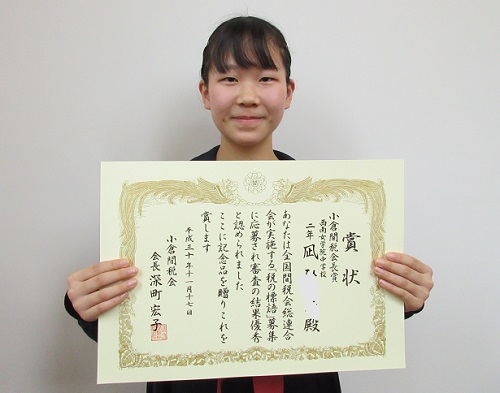 賞状
小倉間税会長賞
西南女学院中学校
二年 凪 殿
あなたは全国間税会総連合
会が実施する「税の標語」募集
に応募され審査の結果優秀
と認められました
ここに記念品を贈りこれを
賞します
平成三十年十一月十七日
小倉間税会
会長 深町宏子